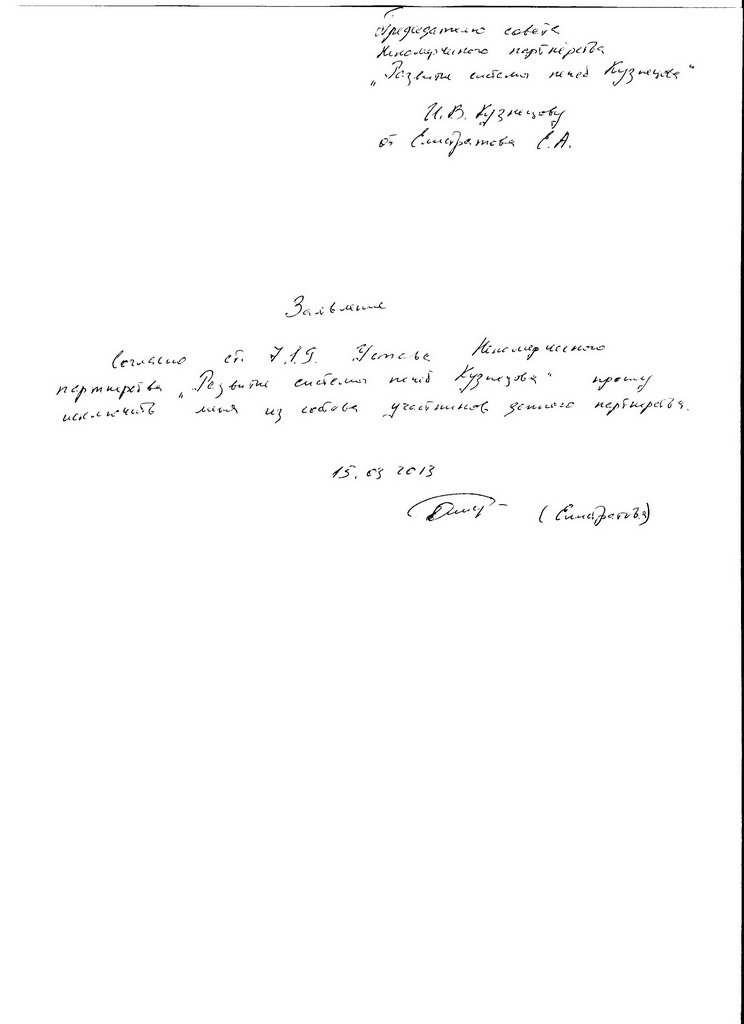 Председателю совета
Некоммерческого партнёрства
„Развитие системы печей Кузнецова"
И.В. Кузнецову
от Елистратова Е.А.
Заявление
Согласно ст. Устава Некоммерческого
партнерства „Развитие системы печей Кузнецова" прошу
исключить меня из состава участников данного партнерства.
15.03 2013
(Елистратов)